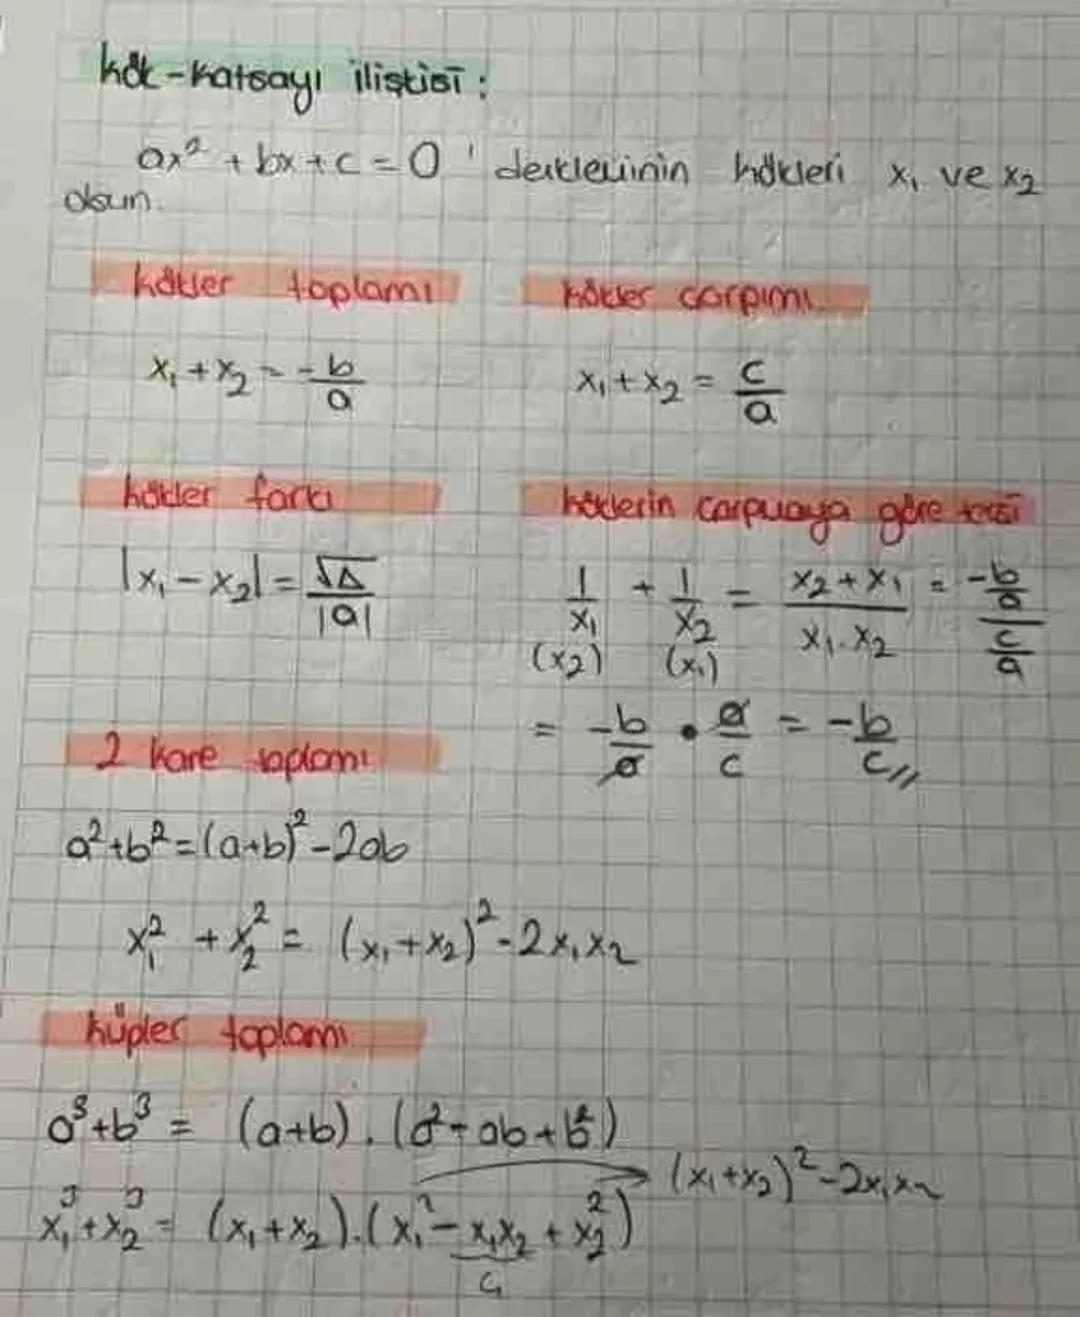 kök-katsayı ilişkisi:
ax² + bx + c = 0 denkleminin kökleri x₁ ve x₂
olsun.
kökler toplamı
x₁ + x₂ = -b/a
kökler carpımı
x₁ + x₂ = c/a
kökler farkı
|x₁ - x₂| = √Δ/|a|
köklerin carpmaya göre tersi
1/x₁ + 1/x₂ = (x₂ + x₁)/(x₁ . x₂) = (-b/a)/(c/a)
(x₂) (x₁)
= -b/a • a/c = -b/c //
2 kare toplamı
a² + b² = (a+b)² - 2ab
x₁² + x₂² = (x₁ + x₂)² - 2x₁x₂
küpler toplamı
a³ + b³ = (a+b) . (a² - ab + b²)
(x₁ + x₂)² - 2x₁x₂
x₁³ + x₂³ = (x₁ + x₂) . (x₁² - x₁x₂ + x₂²)